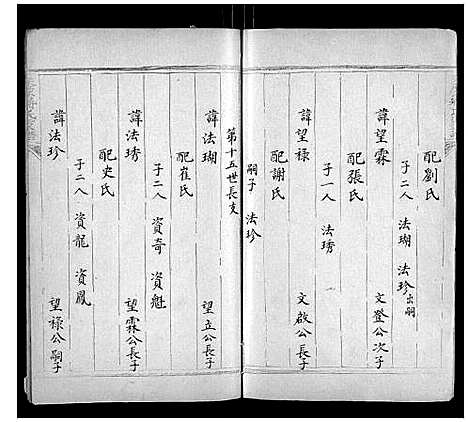 配劉氏
子二人 法瑚 法珍出嗣
諱望霖 文登公次子
配張氏
子一人 法琇
諱望禄 文啟公長子
配謝氏
嗣子 法珍
第十五世長支
諱法瑚 望立公長子
配崔氏
子二人 資奇 資魁
諱法琇 望霖公長子
配史氏
子二人 資龍 資鳳
諱法珍 望禄公嗣子